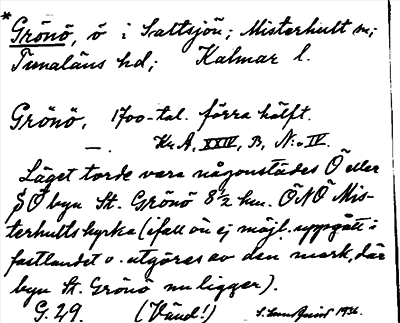 * Grönö, ö i Saltsjön; Misterhult sn;
Tunaläns hd; Kalmar l.
Grönö, 1700-tal. förra hälft.
—. Kr. A, XXIV, B, N:o IV.
Läget torde vara någonstädes Ö eller
SÖ byn St. Grönö 8½ km. ÖNÖ Mis-
terhults kyrka (ifall ön ej möjl. uppgått i
fastlandet o. utgöres av den mark, där
byn St. Grönö nu ligger).
G. 29. (Vänd!) 1936.